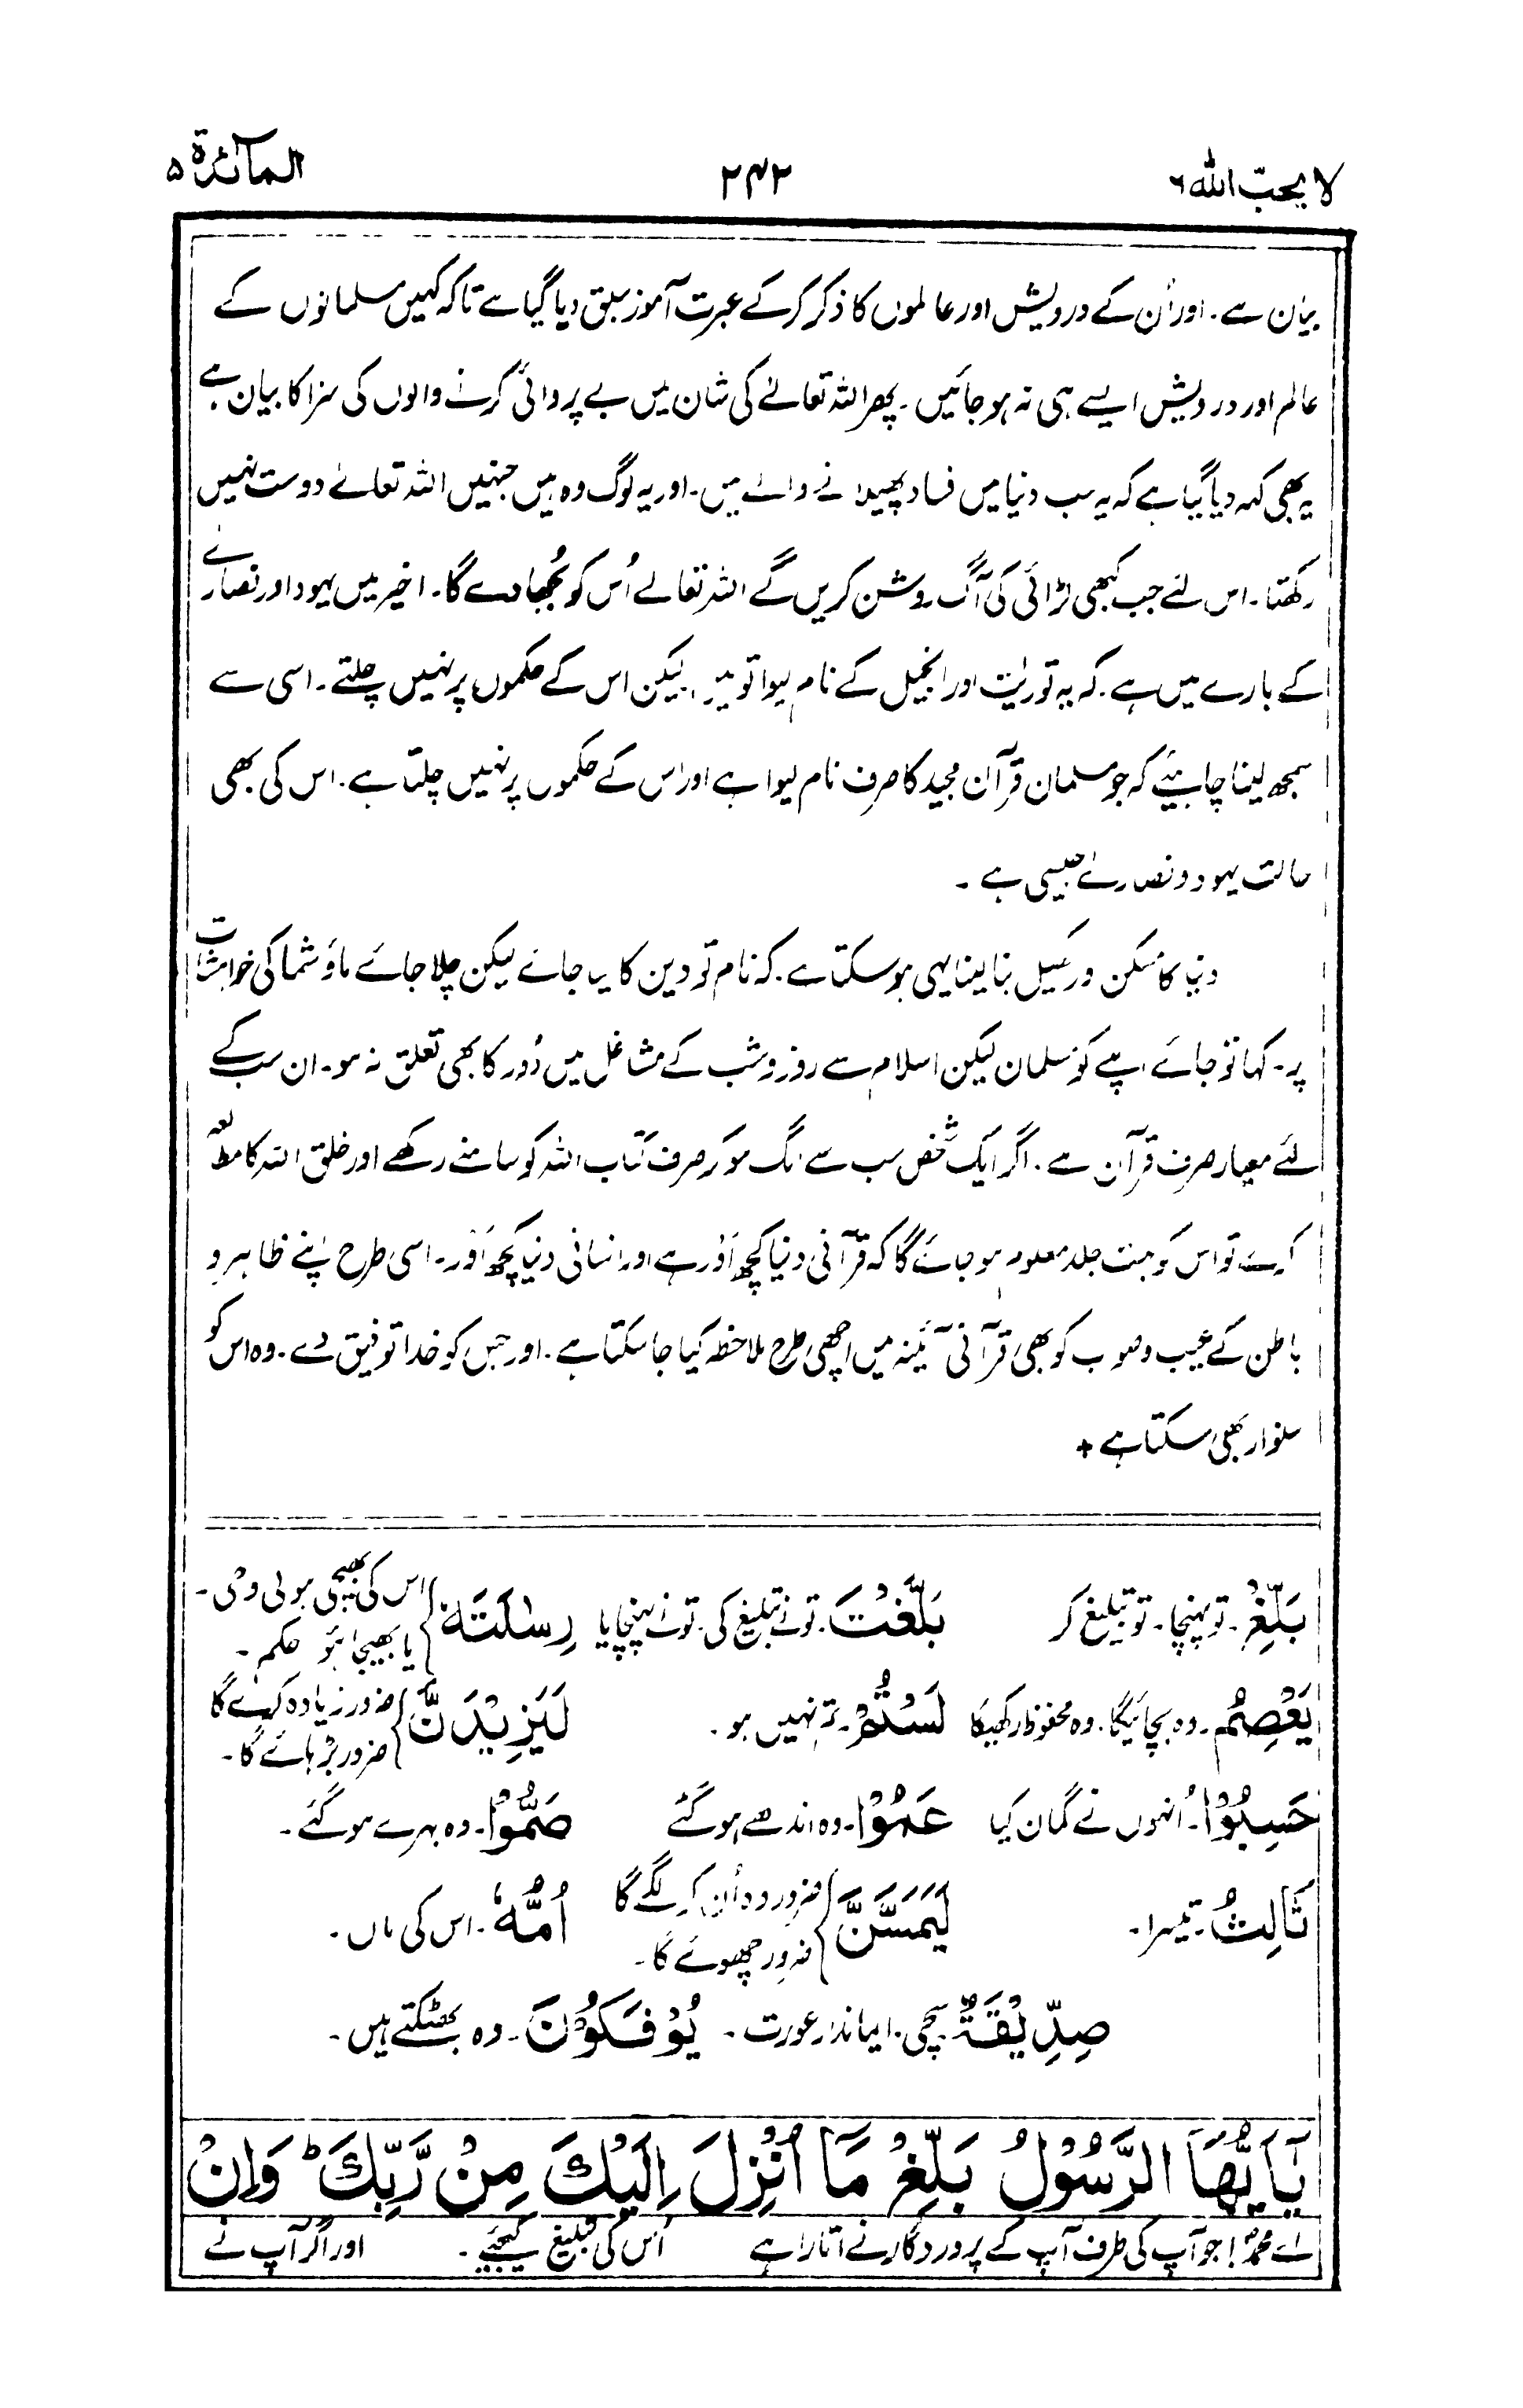 لا یحبّ الله ۶
۲۴۲
المآئدة ۵
بیان ہے۔ اور اُن کے درویش اور عالموں کا ذکر کر کے عبرت آموز سبق دیا گیا ہے تاکہ کہیں مسلمانوں کے
عالم اور درویش ایسے ہی نہ ہو جائیں۔ پھر اللہ تعالےٰ کی شان میں بے پروائی کرنے والوں کی سزا کا بیان ہے
یہ بھی کہہ دیا گیا ہے کہ یہ سب دنیا میں فساد پھیلانے والے ہیں۔ اور یہ لوگ وہ ہیں جنہیں اللہ تعالےٰ دوست نہیں
رکھتا۔ اس لئے جب کبھی لڑائی کی آگ روشن کریں گے اللہ تعالےٰ اُس کو بُجھا دے گا۔ اخیر میں یہود اور نصاریٰ
کے بارے میں ہے۔ کہ یہ توریٰت اور انجیل کے نام لیوا تو ہیں، لیکن اس کے حکموں پر نہیں چلتے۔ اسی سے
سمجھ لینا چاہیئے کہ جو مسلمان قرآن مجید کا صرف نام لیوا ہے اور اس کے حکموں پر نہیں چلتا ہے۔ اس کی بھی
حالت یہود و نصاریٰ جیسی ہے۔
دنیا کا مسکن بنا لینا یہی ہو سکتا ہے۔ کہ نام تو دین کا لیا جائے لیکن چلا جائے ماؤ شما کی خواہشات
پر۔ کہا تو جائے اپنے کو مسلمان لیکن اسلام سے روز و شب کے مشاغل میں دُور کا بھی تعلق نہ ہو۔ ان سب کے
لئے معیار صرف قرآن ہے۔ اگر ایک شخص سب سے الگ ہو کر صرف کتاب اللہ کو سامنے رکھے اور خلق اللہ کا مطالعہ
کرے تو اس کو بہت جلد معلوم ہو جائے گا کہ قرآنی دنیا کچھ اَور ہے اور انسانی دنیا کچھ اَور۔ اسی طرح اپنے ظاہر و
باطن کے عیب و صوب کو بھی قرآنی آئینہ میں اچھی طرح ملاحظہ کیا جا سکتا ہے۔ اور جس کو خدا توفیق دے۔ وہ اس کو
سنوار بھی سکتا ہے +
بَلِّغْ۔ تو پہنچا۔ تو تبلیغ کر بَلَّغْتَ۔ تو نے تبلیغ کی۔ تو نے پہنچایا رِسٰلَتَهٗ اس کی بھیجی ہوئی وحی۔ یا بھیجا ہؤا حکم۔
یَعْصِمُ۔ وہ بچائیگا۔ وہ محفوظ رکھیگا لَسْتُمْ۔ تم نہیں ہو۔ لَیَزِیْدَنَّ ضرور زیادہ کرے گا ضرور بڑھائے گا۔
حَسِبُوْا۔ اُنہوں نے گمان کیا عَمُوْا۔ وہ اندھے ہو گئے صَمُّوْا۔ وہ بہرے ہو گئے۔
ثَالِثُ۔ تیسرا۔ لَیَمَسَّنَّ ضرور وہ اُن کو لگے گا ضرور چھوئے گا۔ اُمُّهٗ۔ اس کی ماں۔
صِدِّیْقَةٌ سچی۔ ایماندار عورت۔ یُؤْفَکُوْنَ۔ وہ بھٹکتے ہیں۔
یٰٓاَیُّهَا الرَّسُوْلُ بَلِّغْ مَآ اُنْزِلَ اِلَیْكَ مِنْ رَّبِّكَ ؕ وَاِنْ
اے محمدؐ! جو آپ کی طرف آپ کے پروردگار نے اتارا ہے اُس کی تبلیغ کیجئے۔ اور اگر آپ نے